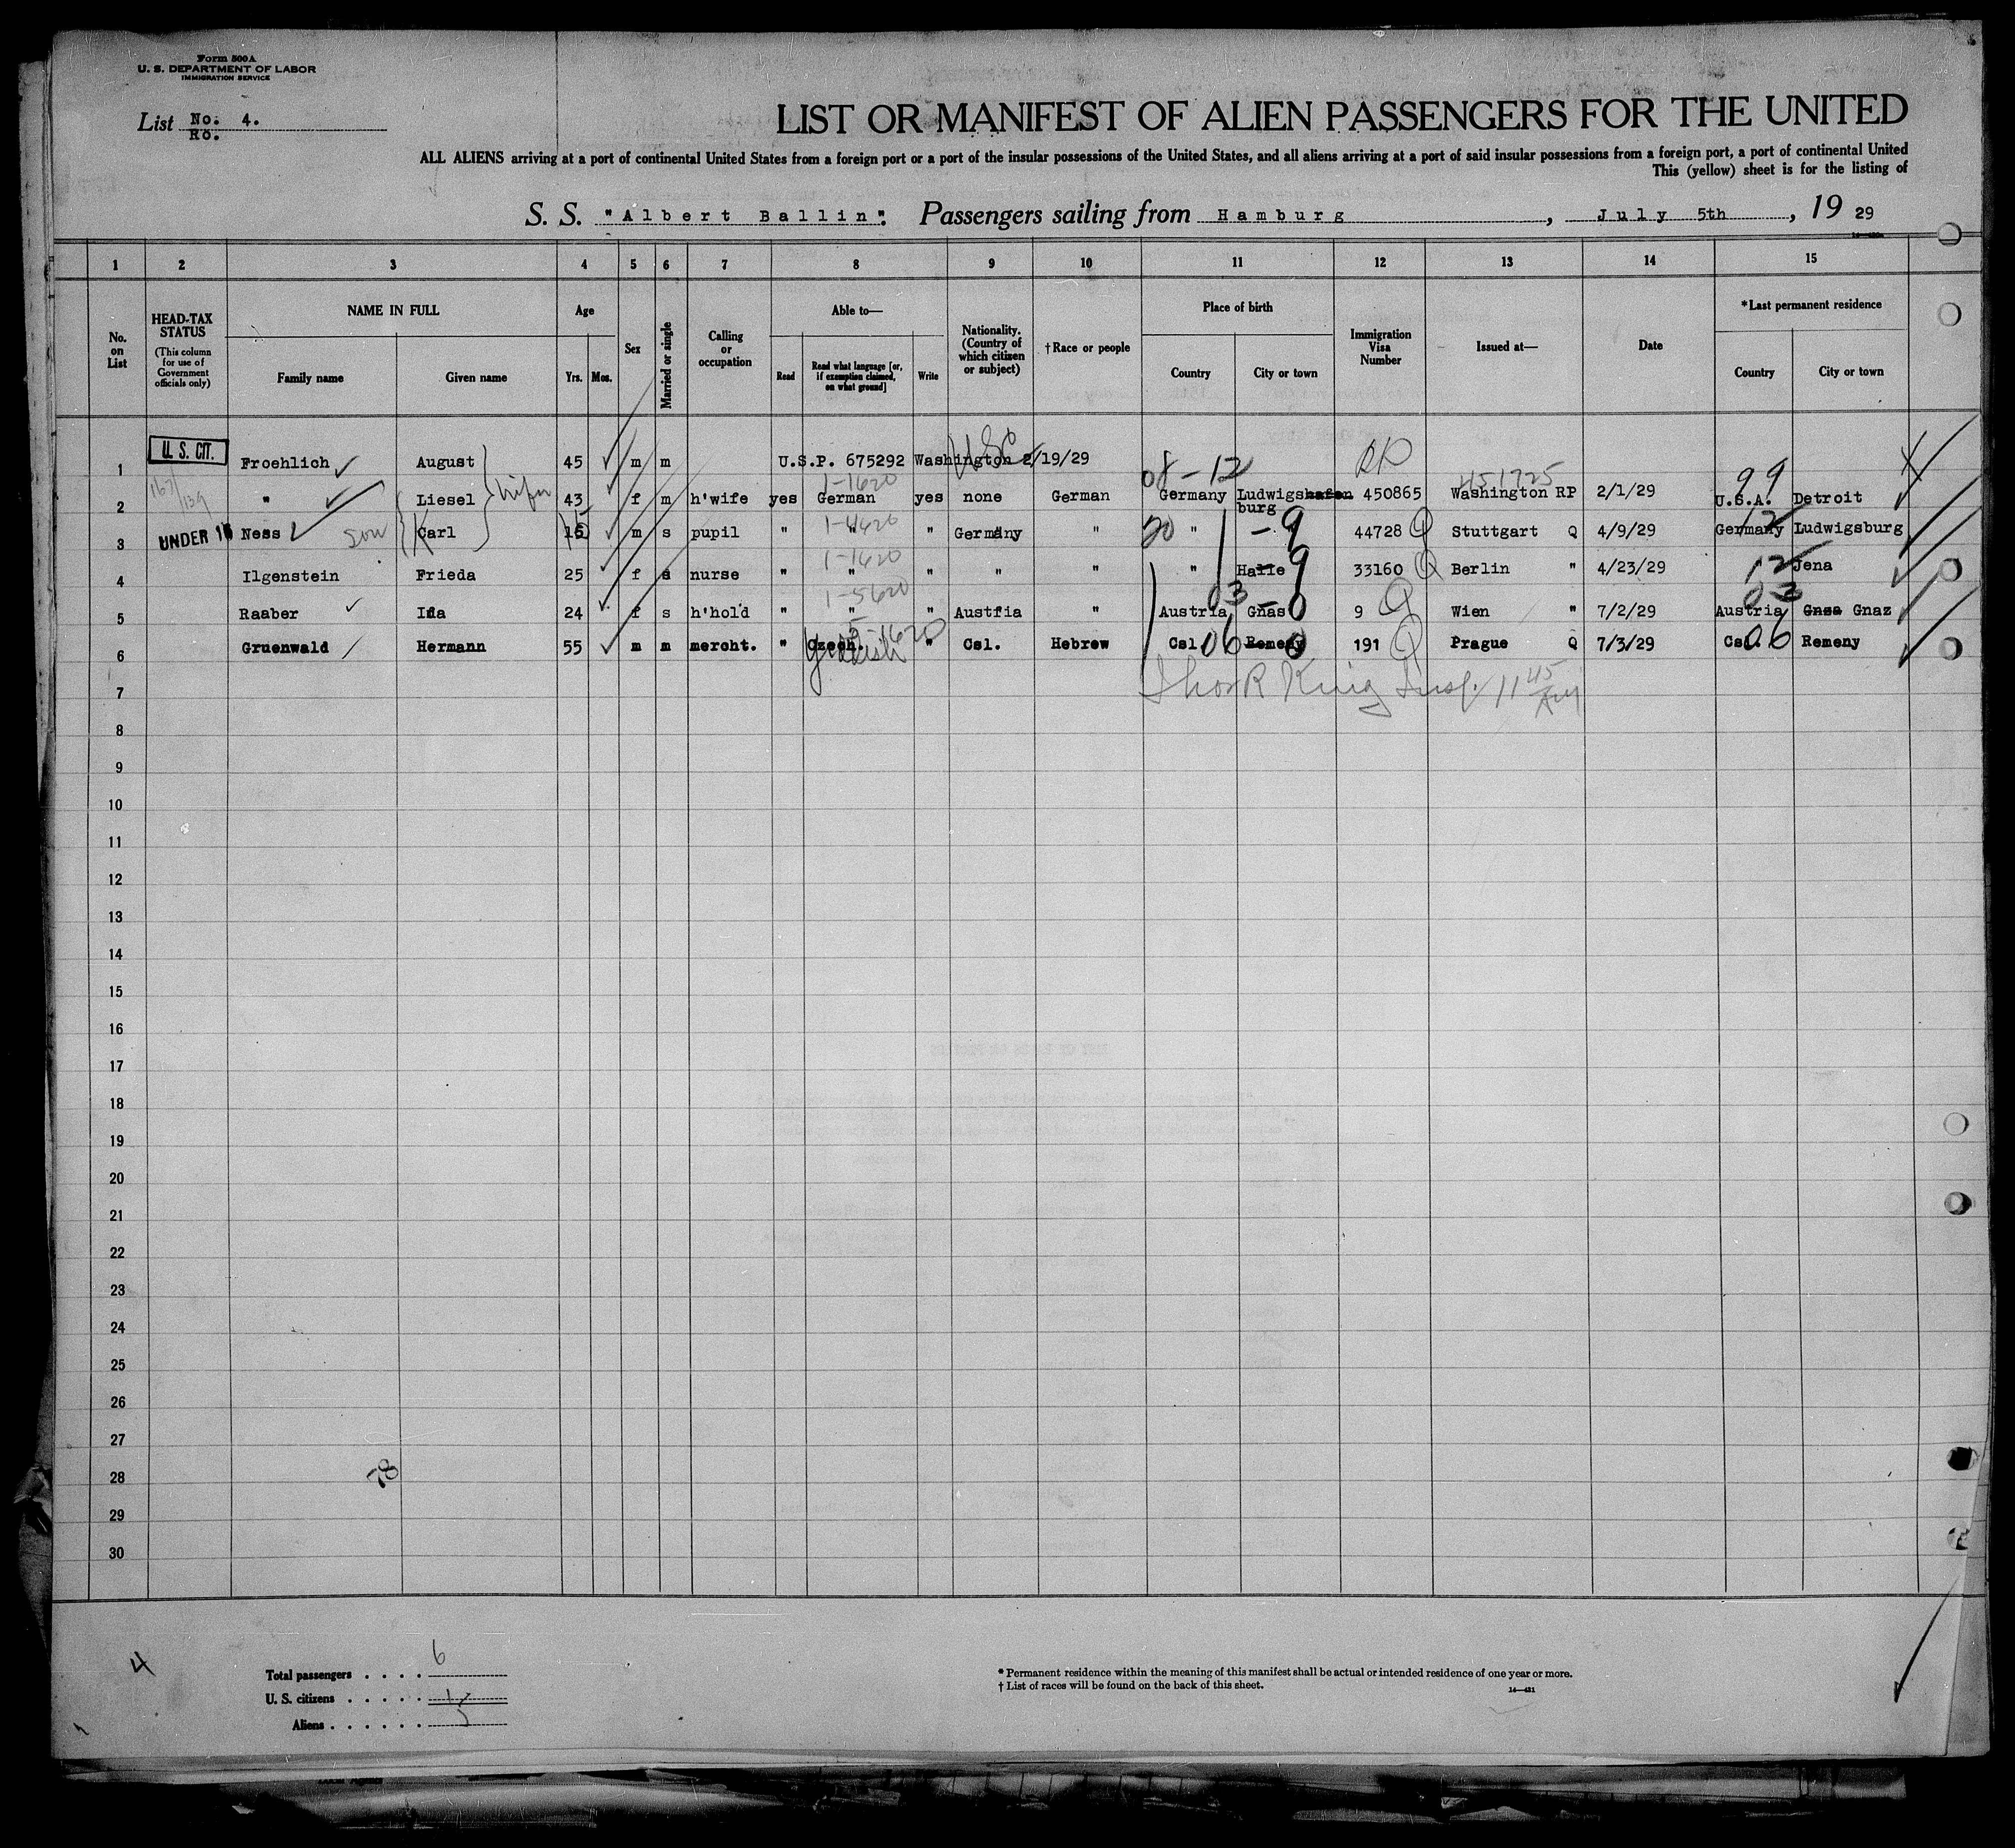 Form 500A
U. S. DEPARTMENT OF LABOR
IMMIGRATION SERVICE
List No. 4.
LIST OR MANIFEST OF ALIEN PASSENGERS FOR THE UNITED
ALL ALIENS arriving at a port of continental United States from a foreign port or a port of the insular possessions of the United States, and all aliens arriving at a port of said insular possessions from a foreign port, a port of continental United
This (yellow) sheet is for the listing of
S. S. "Albert Ballin". Passengers sailing from Hamburg, July 5th, 19 29
1 2 3 4 5 6 7 8 9 10 11 12 13 14 15
No. on List
HEAD-TAX STATUS (This column for use of Government officials only)
NAME IN FULL
Family name Given name
Age
Yrs. Mos.
Sex
Married or single
Calling or occupation
Able to—
Read Read what language [or, if exemption claimed, on what ground] Write
Nationality. (Country of which citizen or subject)
†Race or people
Place of birth
Country City or town
Immigration Visa Number
Issued at—
Date
*Last permanent residence
Country City or town
1 U. S. CIT. Froehlich August 45 m m U.S.P. 675292 Washington 2/19/29 USC RP
2 " Liesel wife 43 f m h'wife yes German yes none German Germany Ludwigshafen burg 450865 Washington RP 2/1/29 U.S.A. Detroit
08-12 1-1620 451725 99
3 UNDER 16 Ness son Carl m s pupil " " " Germany " " 44728 Q Stuttgart Q 4/9/29 Germany Ludwigsburg
4 Ilgenstein Frieda 25 f s nurse " " " " " " Halle 33160 Q Berlin " 4/23/29 Jena
5 Raaber Ida 24 f s h'hold " " " Austria " Austria Gnas 9 Q Wien " 7/2/29 Austria Gnas Gnaz
6 Gruenwald Hermann 55 m m mercht. " Czech. Yiddish " Csl. Hebrew Csl. Remeny 191 Q Prague Q 7/3/29 Csl. Remeny
7 Thos R King Insp. 11 45 AM
8
9
10
11
12
13
14
15
16
17
18
19
20
21
22
23
24
25
26
27
28 78
29
30
4
Total passengers . . . . 6
U. S. citizens . . . . . 1
Aliens . . . . . . 5
* Permanent residence within the meaning of this manifest shall be actual or intended residence of one year or more.
† List of races will be found on the back of this sheet.
14—431